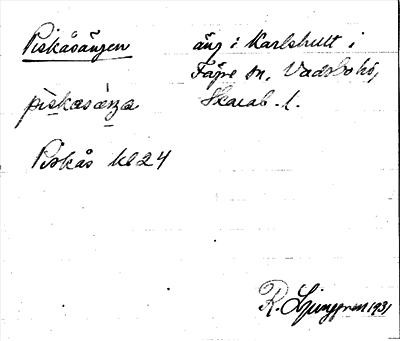 Piskåsängen
äng i Karlshult i
Fägre sn, Vadsbo hd,
Skarab. l.
pìskasǻŋa
Piskås kl 24
R. Ljunggren 1931